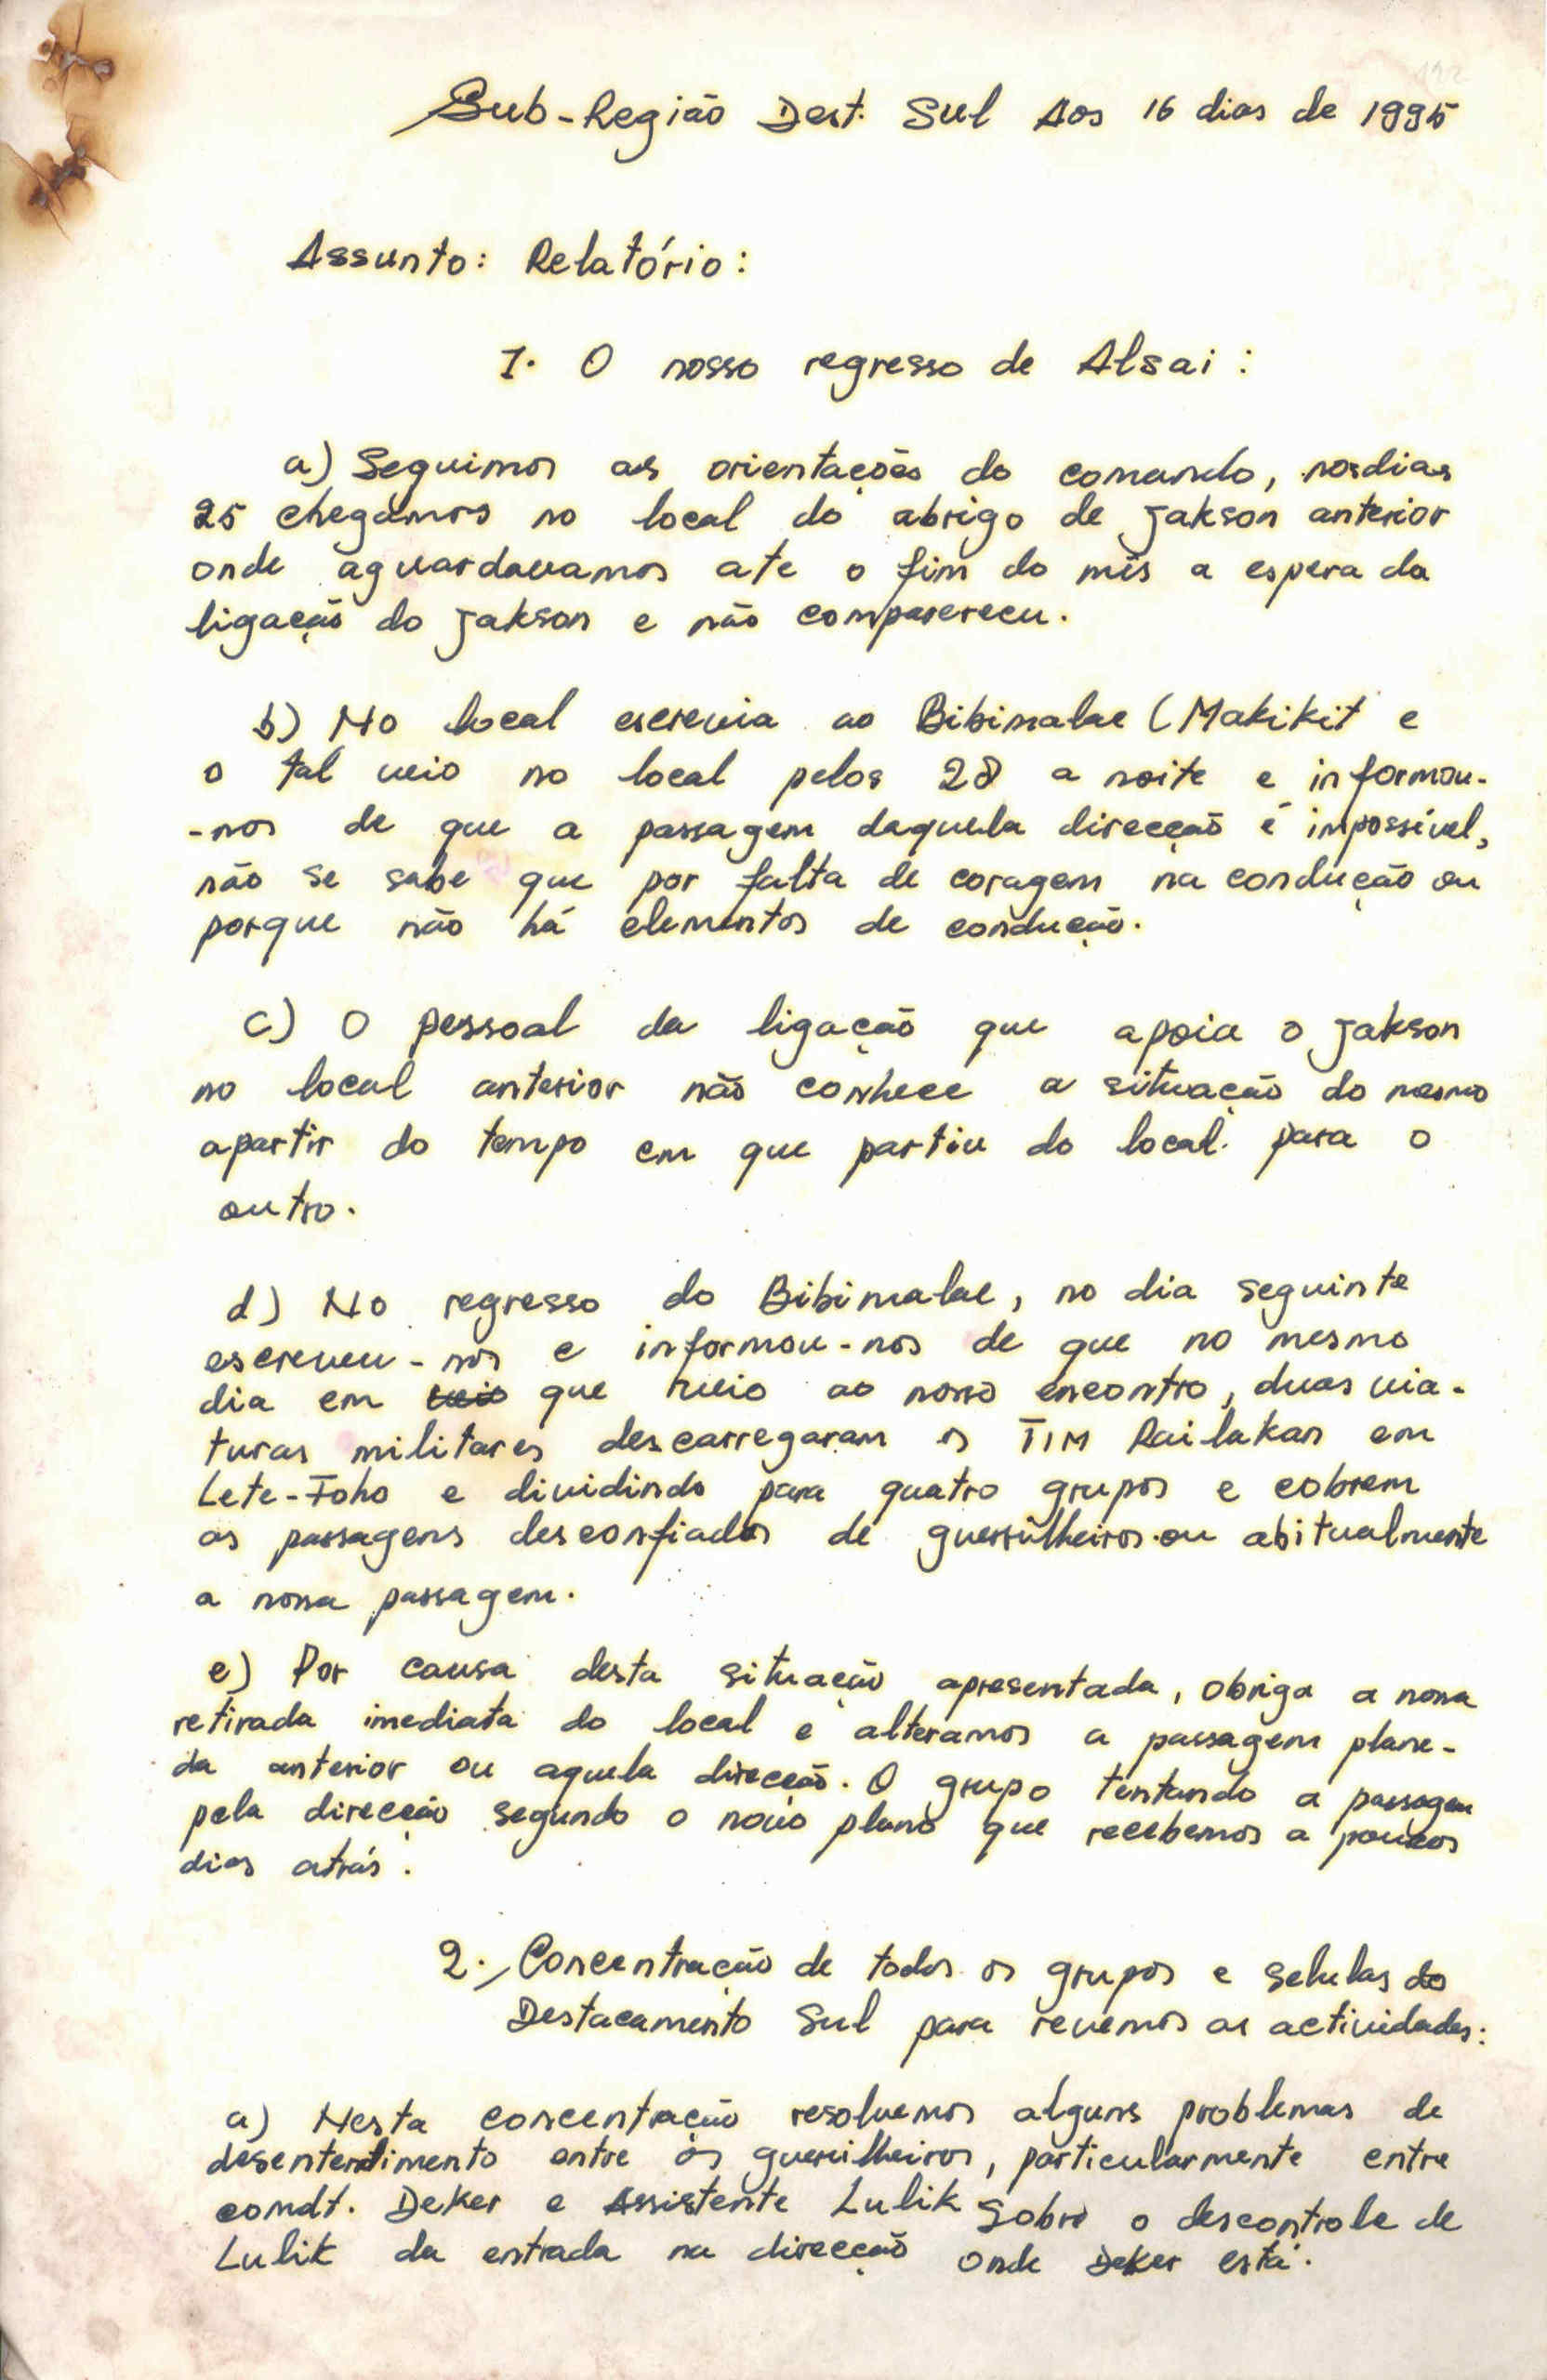 Sub-Região Dest. Sul Aos 16 dias de 1995
Assunto: Relatório:
1. O nosso regresso de Alsai:
a) Seguimos as orientações do comando, nos dias
25 chegamos no local do abrigo de Jakson anterior
onde aguardavamos ate o fim do mês a espera da
ligação do Jakson e não compareceu.
b) No local escrevia ao Bibimalae (Makikit e
o tal veio no local pelos 28 a noite e informou-
-nos de que a passagem daquela direcção é impossível,
não se sabe que por falta de coragem na condução ou
porque não há elementos de condução.
c) O pessoal da ligação que apoia o Jakson
no local anterior não conhece a situação do mesmo
apartir do tempo em que partiu do local para o
outro.
d) No regresso do Bibimalae, no dia seguinte
escreveu-nos e informou-nos de que no mesmo
dia em veio que veio ao nosso encontro, duas via-
turas militares descarregaram os TIM Railakan em
Lete-Foho e dividindo para quatro grupos e cobrem
as passagens desconfiados de guerrilheiros ou abitualmente
a nossa passagem.
e) Por causa desta situação apresentada, obriga a nossa
retirada imediata do local e alteramos a passagem plane-
da anterior ou aquela direcção. O grupo tentando a passagem
pela direcção segundo o novo plano que recebemos a poucos
dias atrás.
2. Concentração de todos os grupos e selulas do
Destacamento Sul para revemos as actividades:
a) Nesta concentração resolvemos alguns problemas de
desentendimento entre os guerrilheiros, particularmente entre
comdt. Deker e Assistente Lulik sobre o descontrole de
Lulik da entrada na direcção onde Deker está.